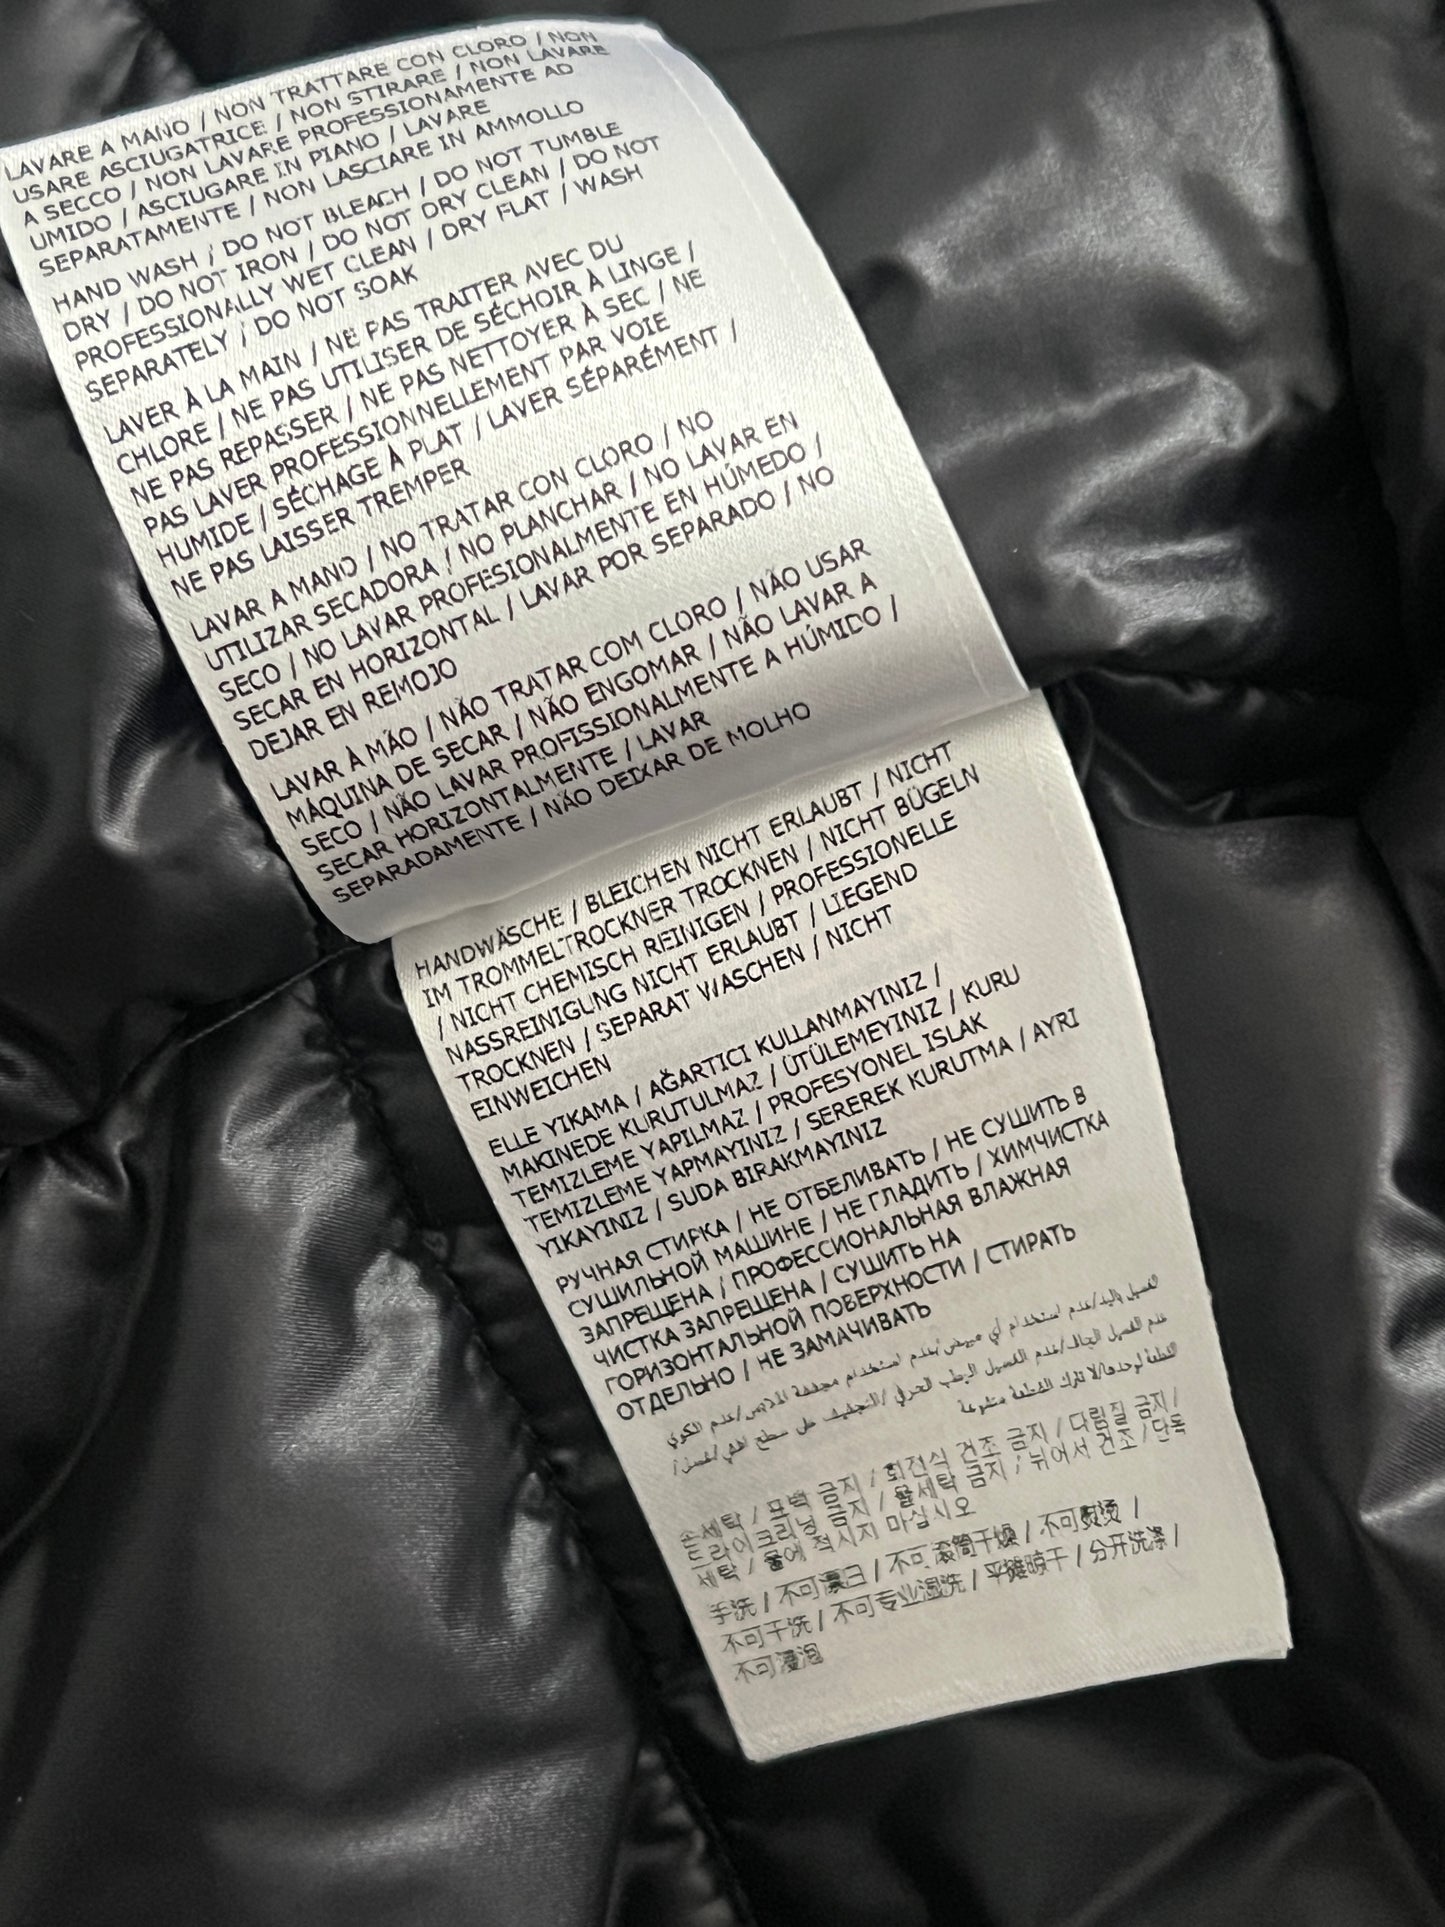 LAVARE A MANO / NON TRATTARE CON CLORO / NON
USARE ASCIUGATRICE / NON STIRARE / NON LAVARE
A SECCO / NON LAVARE PROFESSIONAMENTE AD
UMIDO / ASCIUGARE IN PIANO / LAVARE
SEPARATAMENTE / NON LASCIARE IN AMMOLLO
HAND WASH / DO NOT BLEACH / DO NOT TUMBLE
DRY / DO NOT IRON / DO NOT DRY CLEAN / DO NOT
PROFESSIONALLY WET CLEAN / DRY FLAT / WASH
SEPARATELY / DO NOT SOAK
LAVER À LA MAIN / NE PAS TRAITER AVEC DU
CHLORE / NE PAS UTILISER DE SÉCHOIR À LINGE /
NE PAS REPASSER / NE PAS NETTOYER À SEC / NE
PAS LAVER PROFESSIONNELLEMENT PAR VOIE
HUMIDE / SÉCHAGE À PLAT / LAVER SÉPARÉMENT /
NE PAS LAISSER TREMPER
LAVAR A MANO / NO TRATAR CON CLORO / NO
UTILIZAR SECADORA / NO PLANCHAR / NO LAVAR EN
SECO / NO LAVAR PROFESIONALMENTE EN HÚMEDO /
SECAR EN HORIZONTAL / LAVAR POR SEPARADO / NO
DEJAR EN REMOJO
LAVAR À MÃO / NÃO TRATAR COM CLORO / NÃO USAR
MÁQUINA DE SECAR / NÃO ENGOMAR / NÃO LAVAR A
SECO / NÃO LAVAR PROFISSIONALMENTE A HÚMIDO /
SECAR HORIZONTALMENTE / LAVAR
SEPARADAMENTE / NÃO DEIXAR DE MOLHO
HANDWÄSCHE / BLEICHEN NICHT ERLAUBT / NICHT
IM TROMMELTROCKNER TROCKNEN / NICHT BÜGELN
/ NICHT CHEMISCH REINIGEN / PROFESSIONELLE
NASSREINIGUNG NICHT ERLAUBT / LIEGEND
TROCKNEN / SEPARAT WASCHEN / NICHT
EINWEICHEN
ELLE YIKAMA / AĞARTICI KULLANMAYINIZ /
MAKINEDE KURUTULMAZ / ÜTÜLEMEYINIZ / KURU
TEMIZLEME YAPILMAZ / PROFESYONEL ISLAK
TEMIZLEME YAPMAYINIZ / SEREREK KURUTMA / AYRI
YIKAYINIZ / SUDA BIRAKMAYINIZ
РУЧНАЯ СТИРКА / НЕ ОТБЕЛИВАТЬ / НЕ СУШИТЬ В
СУШИЛЬНОЙ МАШИНЕ / НЕ ГЛАДИТЬ / ХИМЧИСТКА
ЗАПРЕЩЕНА / ПРОФЕССИОНАЛЬНАЯ ВЛАЖНАЯ
ЧИСТКА ЗАПРЕЩЕНА / СУШИТЬ НА
ГОРИЗОНТАЛЬНОЙ ПОВЕРХНОСТИ / СТИРАТЬ
ОТДЕЛЬНО / НЕ ЗАМАЧИВАТЬ
الغسيل باليد/عدم استخدام أي مبيض/عدم استخدام مجففة الملابس/عدم الكوي
عدم الغسيل الجاف/عدم الغسيل الرطب الحرفي /التجفيف على سطح افقي/غسل/
القطعة لوحدها/لا تترك القطعة منقوعة
손세탁 / 표백 금지 / 회전식 건조 금지 / 다림질 금지 /
드라이크리닝 금지 / 물세탁 금지 / 뉘어서 건조 / 단독
세탁 / 물에 적시지 마십시오
手洗 / 不可漂白 / 不可滚筒干燥 / 不可熨烫 /
不可干洗 / 不可专业湿洗 / 平摊晾干 / 分开洗涤 /
不可浸泡